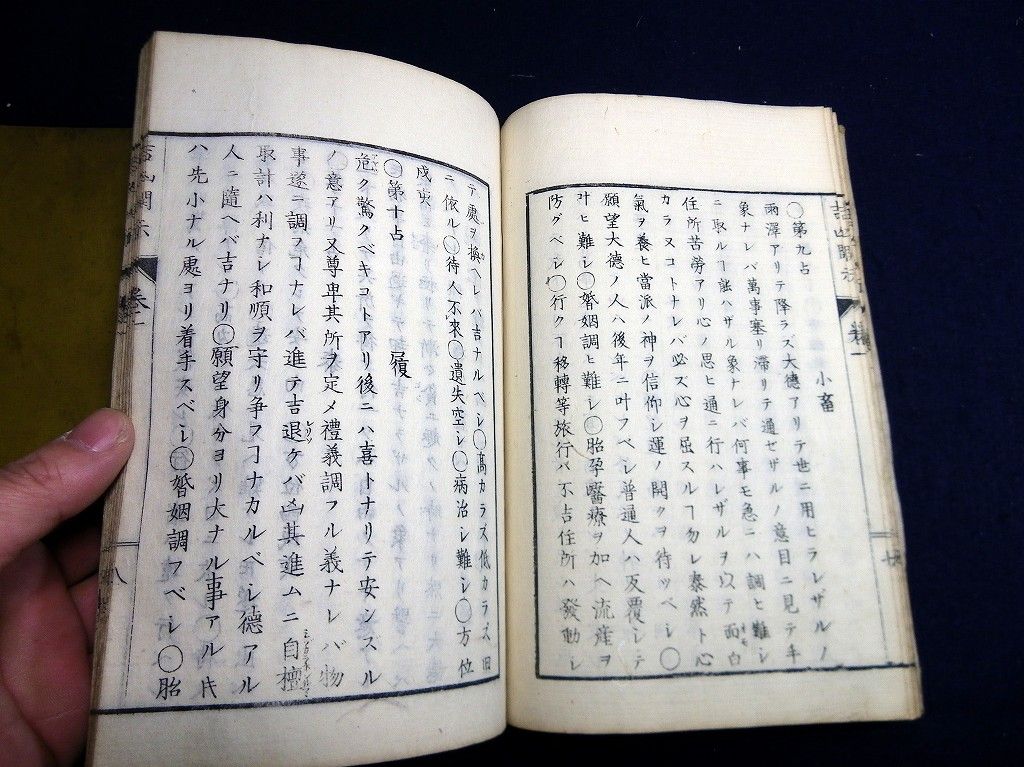 〇第九占 小畜
雨澤アリテ降ラズ大德アリテ世ニ用ヒラレザルノ
象ナレバ萬事塞リ滯リテ通ゼザルノ意目ニ見テ手
ニ取ルヿ能ハザル象ナレバ何事モ急ニハ調ヒ難シ
住所苦勞アリ心ノ思ヒ通ニ行ハレザルヲ以テ面白
カラヌコトナレバ必ズ心ヲ屈スルヿ勿レ泰然ト心
氣ヲ養ヒ當派ノ神ヲ信仰シ運ノ開クヲ待ツベシ〇
願望大德ノ人ハ後年ニ叶フベシ普通人ハ反覆シテ
叶ヒ難シ〇婚姻調ヒ難シ〇胎孕醫療ヲ加ヘ流産ヲ
防グベシ〇行クヿ移轉等旅行バ不吉住所ハ發動シ
テ處ヲ換ヘレバ吉ナルベシ〇高カラズ低カラズ旧
ニ依ル〇待人不來〇遺失空シ〇病治シ難シ〇方位
戌亥
〇第十占 履
危ク驚クベキコトアリ後ニハ喜トナリテ安ンズル
ノ意アリ又尊卑其所ヲ定メ禮義調フル義ナレバ物
事遂ニ調フヿナレバ進テ吉退ケバ凶其進ムニ自檀
取計ハ利ナシ和順ヲ守リ爭フヿナカルベシ德アル
人ニ隨ヘバ吉ナリ〇願望身分ヨリ大ナル事アル氏
ハ先小ナル處ヨリ着手スベシ〇婚姻調フベシ〇胎
八